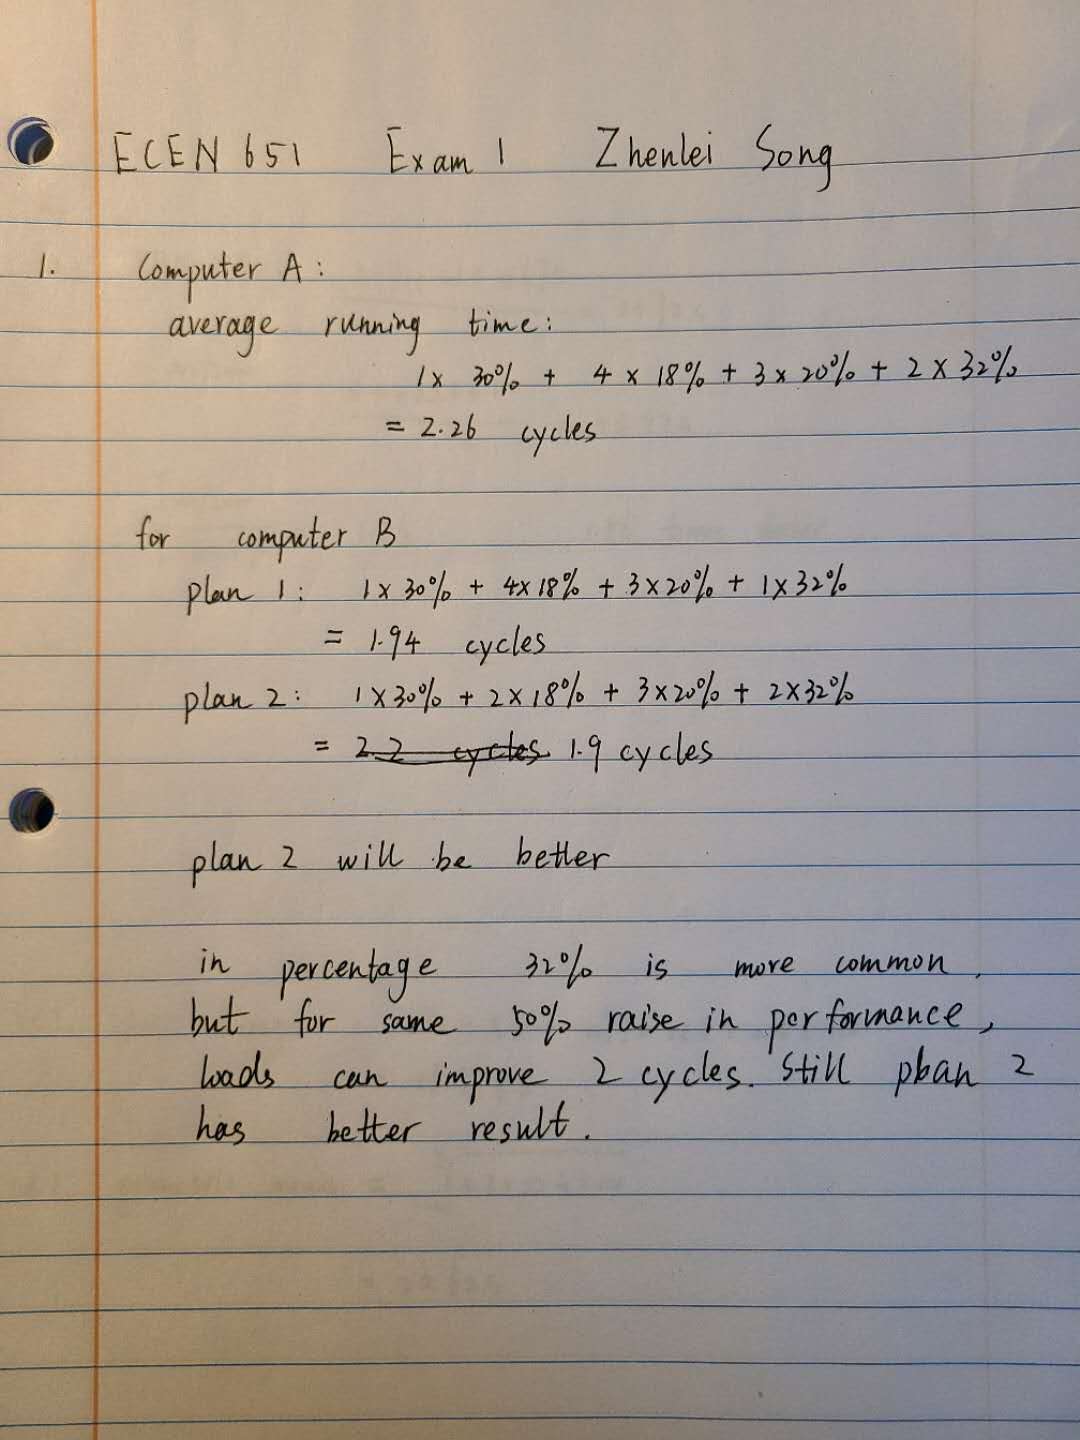 ECEN 651 Exam 1 Zhenlei Song
1. Computer A:
average running time:
1 x 30% + 4 x 18% + 3 x 20% + 2 x 32%
= 2.26 cycles
for computer B
plan 1: 1 x 30% + 4x 18% + 3 x 20% + 1 x 32%
= 1.94 cycles
plan 2: 1 x 30% + 2 x 18% + 3 x 20% + 2 x 32%
= 2.2 cycles 1.9 cycles
plan 2 will be better
in percentage 32% is more common.
but for same 50% raise in performance,
loads can improve 2 cycles. Still plan 2
has better result.